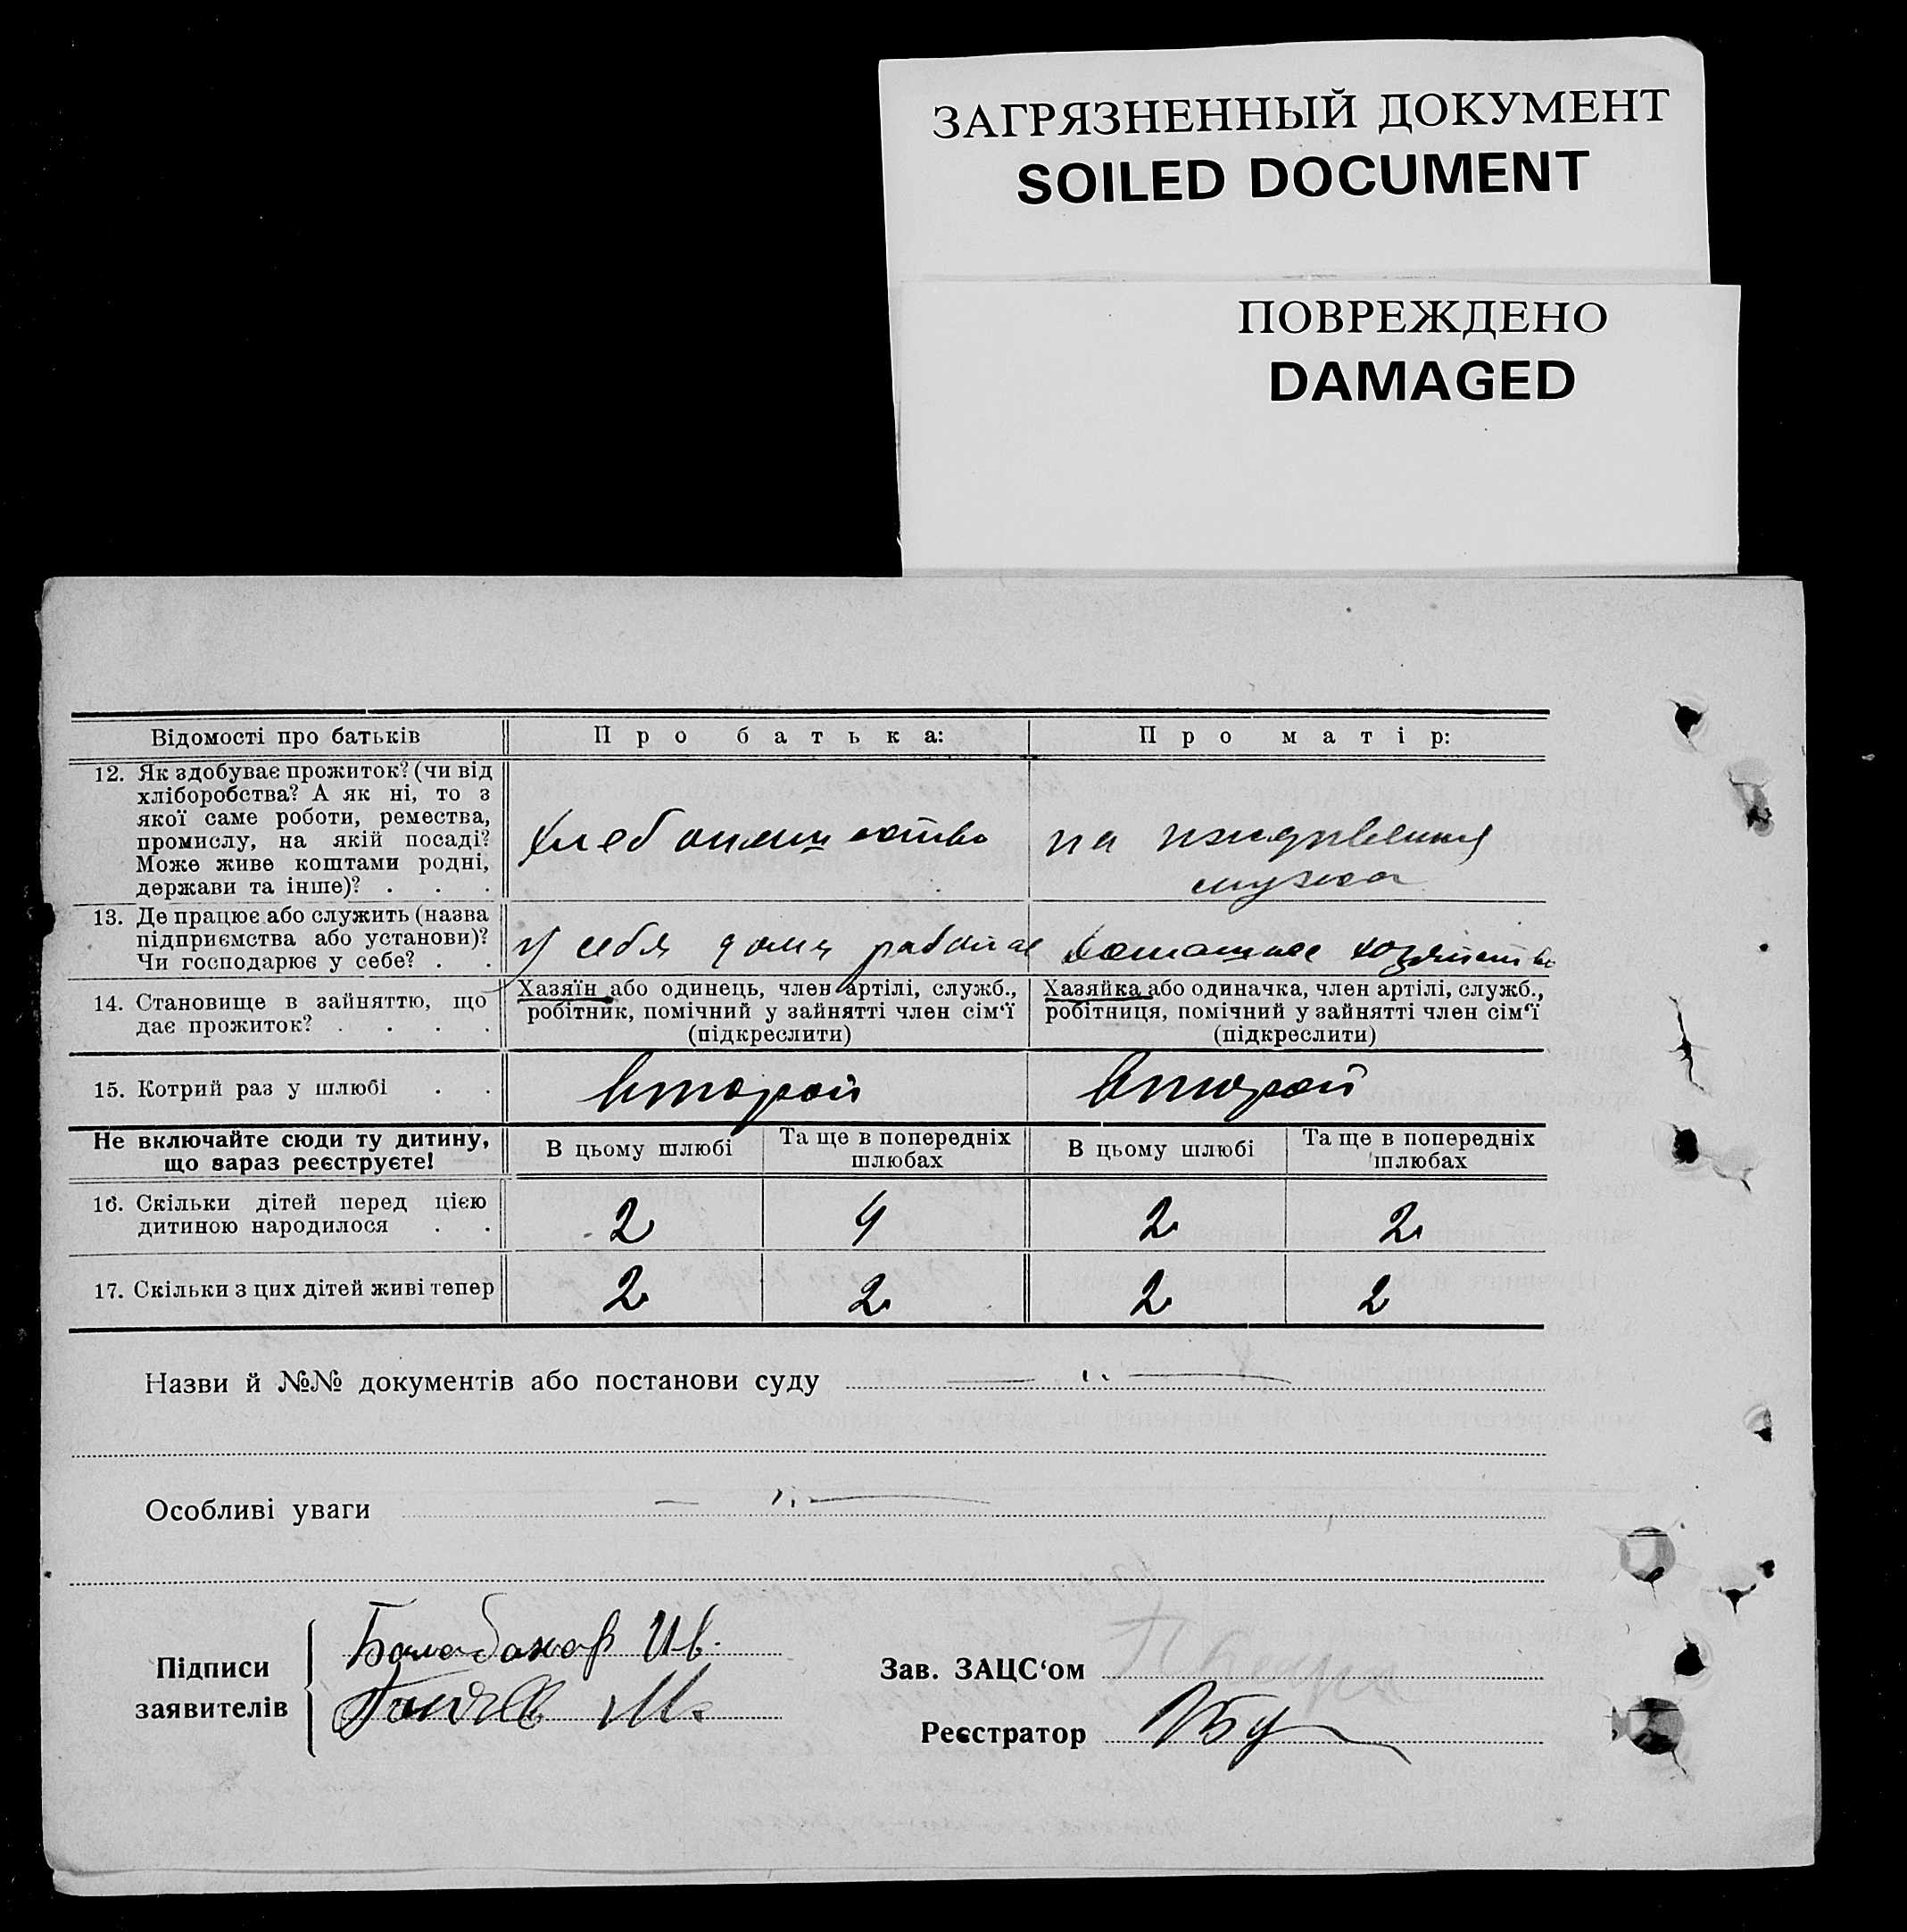 ЗАГРЯЗНЕННЫЙ ДОКУМЕНТ
SOILED DOCUMENT
ПОВРЕЖДЕНО
DAMAGED
Відомості про батьків
Про батька:
Про матір:
12. Як здобуває прожиток? (чи від
хліборобства? А як ні, то з
якої саме роботи, ремества,
промислу, на якій посаді?
Може живе коштами родні,
держави та інше)? . . .
на иждивении
мужа
13. Де працює або служить (назва
підприємства або установи)?
Чи господарює у себе? . .
у себя дома
домашнее хозяйство
14. Становище в зайняттю, що
дає прожиток? . . . .
Хазяїн або одинець, член артілі, служб.,
робітник, помічний у зайнятті член сім‘ї
(підкреслити)
Хазяйка або одиначка, член артілі, служб.,
робітниця, помічний у зайнятті член сім‘ї
(підкреслити)
15. Котрий раз у шлюбі . .
второй
второй
Не включайте сюди ту дитину,
що зараз реєструєте!
В цьому шлюбі
Та ще в попередніх
шлюбах
В цьому шлюбі
Та ще в попередніх
шлюбах
16. Скільки дітей перед цією
дитиною народилося . .
2
4
2
2
17. Скільки з цих дітей живі тепер
2
2
2
2
Назви й №№ документів або постанови суду
Особливі уваги
Підписи
заявителів
Балабанов Ив.
Зав. ЗАЦС‘ом
Реєстратор